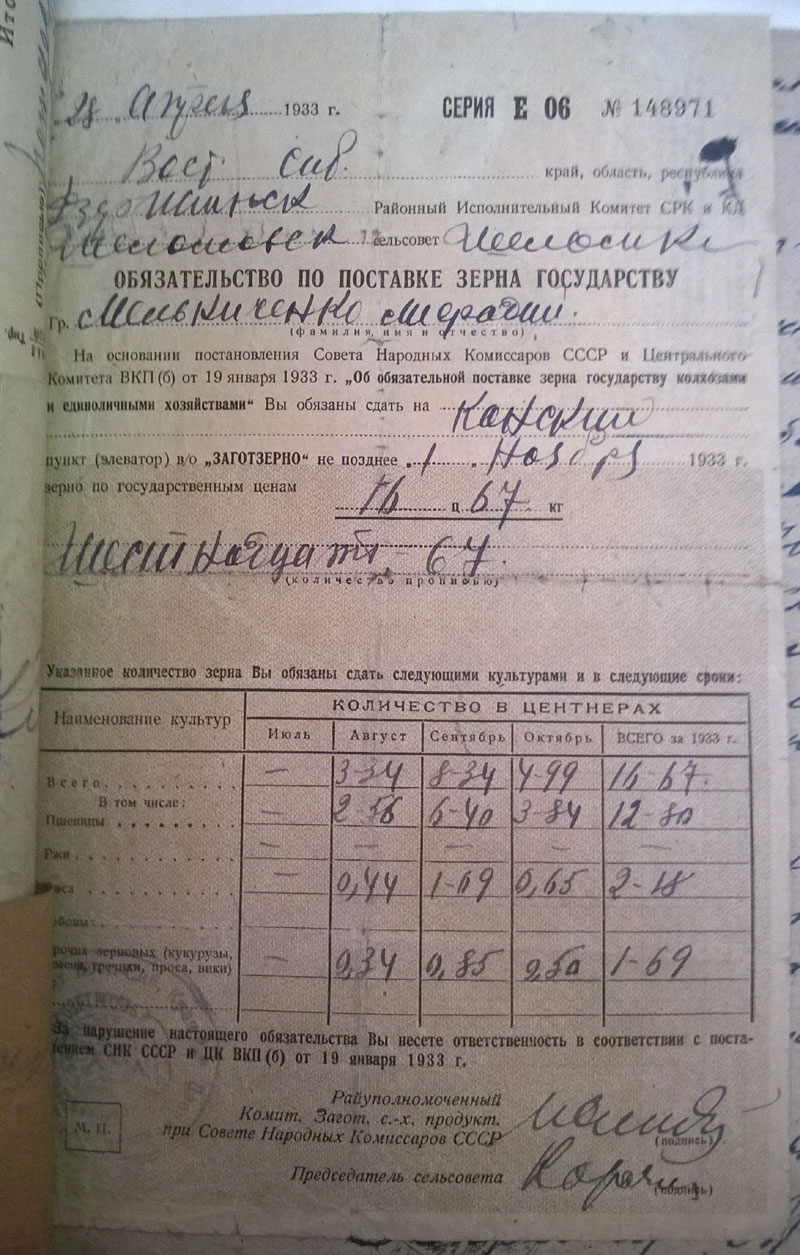 Апреля 1933 г. СЕРИЯ Е 06 № 148971
Вост Сиб. край, область, республика
Районный Исполнительный Комитет СРК и КД
сельсовет
ОБЯЗАТЕЛЬСТВО ПО ПОСТАВКЕ ЗЕРНА ГОСУДАРСТВУ
Гр. Мельниченко
(фамилия, имя и отчество)
На основании постановления Совета Народных Комиссаров СССР и Центрального
Комитета ВКП(б) от 19 января 1933 г. „Об обязательной поставке зерна государству колхозами
и единоличными хозяйствами“ Вы обязаны сдать на Канский
пункт (элеватор) в/о „ЗАГОТЗЕРНО“ не позднее „1„ Ноября 1933 г.
зерно по государственным ценам
16 ц 67 кг
Шестнадцать, 67.
(количество прописью)
Указанное количество зерна Вы обязаны сдать следующими культурами и в следующие сроки:
Наименование культур КОЛИЧЕСТВО В ЦЕНТНЕРАХ
Июль Август Сентябрь Октябрь ВСЕГО за 1933 г.
Всего — 3-34 8-34 4-99 16-67.
В том числе:
Пшеницы — 2-56 6-40 3-84 12-80
Ржи — — — — —
вса — 0,44 1-09 0,65 2-18
обовых
рочих зерновых (кукурузы,
меня, гречихи, проса, вики) — 0,34 0,85 0,50 1-69
За нарушение настоящего обязательства Вы несете ответственность в соответствии с поста-
ением СНК СССР и ЦК ВКП(б) от 19 января 1933 г.
Райуполномоченный
Комит. Загот. с.-х. продукт.
при Совете Народных Комиссаров СССР
(подпись)
М. П.
Председатель сельсовета
(подпись)